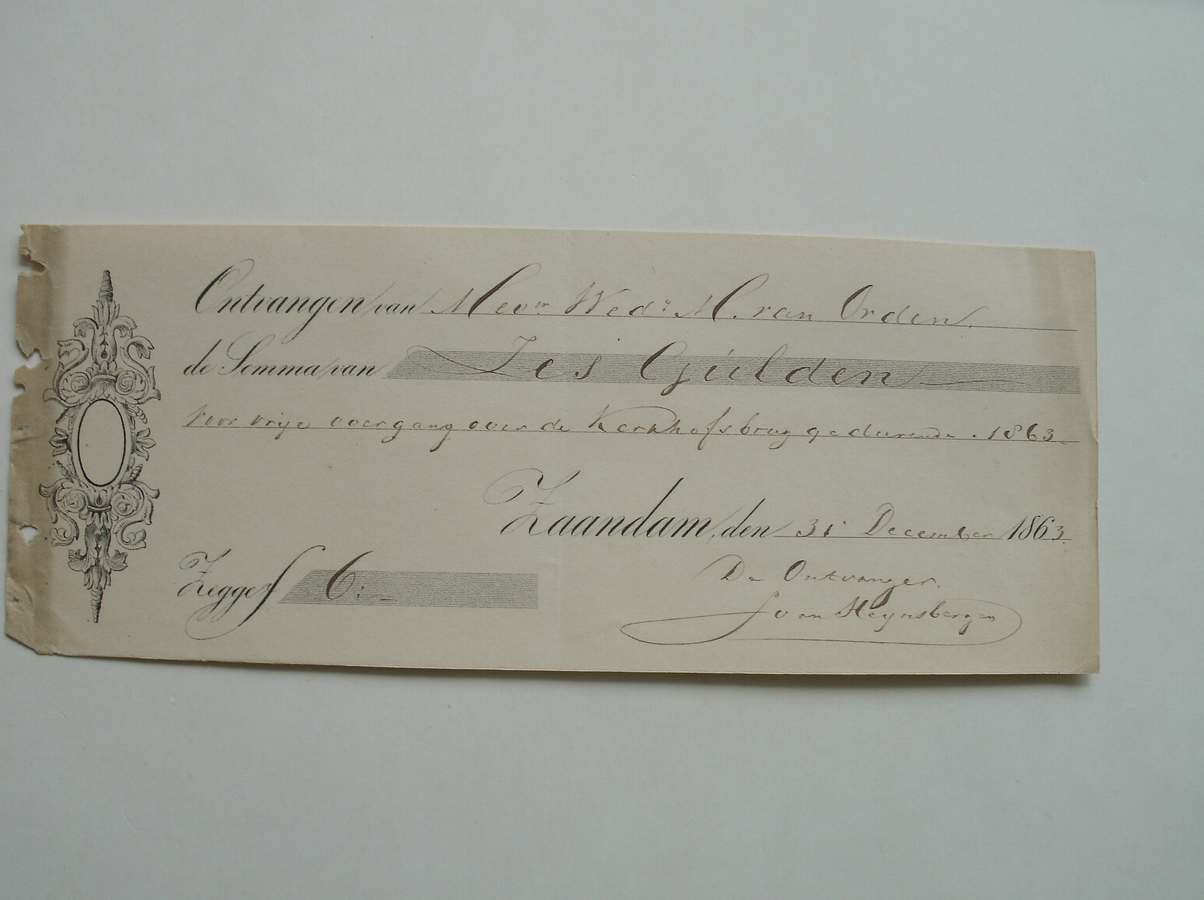 Ontvangen van Mevr Wedr M. van Orden.
de Somma van Zes Gulden
voor vrije overgang over de Kerkhofsbrug gedurende 1863.
Zaandam, den 31 December 1863.
Zegge f 6:-
De Ontvanger.
J van Heynsbergen